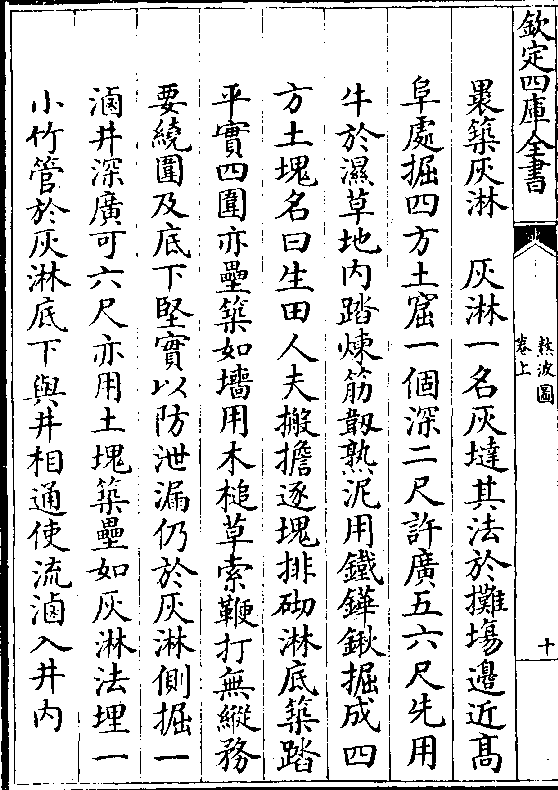 欽定四庫全書
熬波圖
卷上
十
裹築灰淋　灰淋一名灰墶其法於攤場邉近髙
阜處掘四方土窟一個深二尺許廣五六尺先用
牛於濕草地内踏煉筋韌熟泥用鐵鏵鍬掘成四
方土塊名曰生田人夫搬擔逐塊排砌淋底築踏
平實四圍亦壘築如墻用木槌草索鞭打無縱務
要繞圍及底下堅實以防泄漏仍於灰淋側掘一
滷井深廣可六尺亦用土塊築壘如灰淋法埋一
小竹管於灰淋底下與井相通使流滷入井内